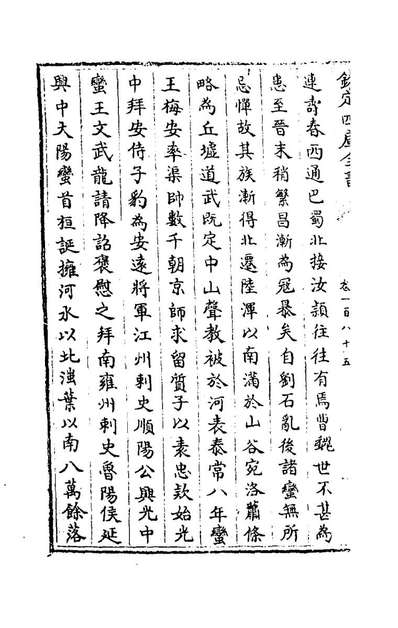 欽定四庫全書
卷一百八十五
連壽春西通巴蜀北接汝潁往往有焉曹魏世不甚為
患至晉末稍繁昌漸為寇暴矣自劉石亂後諸蠻無所
忌憚故其族漸得北遷陸渾以南滿於山谷宛洛蕭條
略為丘墟道武既定中山聲教被於河表泰常八年蠻
王梅安率渠帥數千朝京師求留質子以表忠款始光
中拜安侍子豹為安遠將軍江州刺史順陽公興光中
蠻王文武龍請降詔褒慰之拜南雍州刺史魯陽侯延
興中大陽蠻首桓誕擁沔水以北滍葉以南八萬餘落